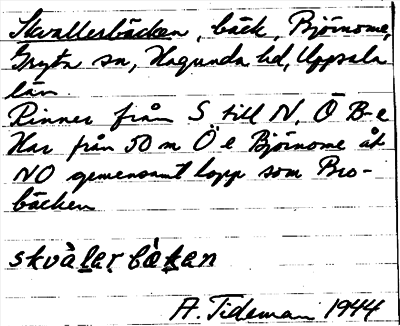 Skvallerbäcken, bäck, Björnome,
Gryta sn, Hagunda hd, Uppsala
län
Rinner från S till N, Ö B-e
Har från 50 m Ö e Björnome åt
NO gemensamt lopp som Bro-
bäcken
skvàlarbäkan
A. Tideman 1944